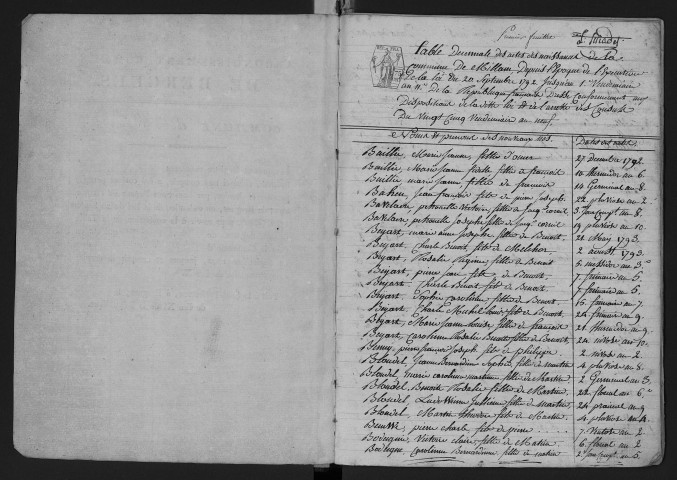 Premier feuillet
Table Decennale des actes des naissances de la
Commune de Millam Depuis l'Epoque de l'Execution
De la loi du 20 Septembre 1792 Jusqu'au 1er Vendemiaire
an 11e De la Republique française Dressé Conformement aux
Dispositions de la dite loi et de l'arreté des Consuls
Du Vingt Cinq Vendemiaire an neuf.
Noms et prenoms des nouveaux nés. Dates des actes
Baillie, Marie Jeanne, fille d'omer 27 decembre 1792
Baillie, Marie Jeanne fille a françois 10 thermidor an 6.
Baillie, marie Jeanne fille de francois 14 Germinal an 8.
Baheu, Jean françois fils de pierre Joseph. 22 pluviose an 2.
Bavelaere, petronille Victoire, fille de Jacq. Corneil 3 Jour Compt. an 8.
Bavelaere, petronille Josephe fille de Jacq. Corneil 19 pluviose an 10.
Beyaert, marie anne Josephe fille de Benoit. 21 May 1793.
Beyaert, Charle Benoit, fils de Melchior. 2 aoust 1793.
Beyaert, Rosalie Regine fille de Benoit 5 messidor an 3.e
Beyaert, pierre Jean fils de Benoit. 7 frimaire an 5.
Beyaert, Charle Benoit fils de Benoit. 7 frimaire an 5.
Beyaert, Sophie Caroline fille de Benoit. 15 frimaire an 7.
Beyaert, Charle Michel Louis fils de Benoit. 24 frimaire an 9.
Beyaert, Marie Jeanne Louise fille de françois 21 thermidor an 9.
Beyaert, Caroline Rosalie fille de Benoit. 24 nivose an 10.
pierre Joseph fils de philippe. 2 nivose an 2.
Blondel, Jeanne Bernardine Sophie fille de martin 4 pluviose an 8.
Blondel, marie Caroline martine fille de Martin 2 Germinal an 3.
Blondel, Benoit Rosalie fille de Martin, 22 floreal an 6.
Blondel, Lucie Julienne fille de martin, 24 prairial an 9
Blondel, Martin fils de Martin. 4 pluviose an
pierre Charle fils de pierre. 7 Ventose an 2.
Victoire Claire fille de Martin 6 floreal an 2
Caroline Bernardine fille de martin 2 Jour Compt an 5.